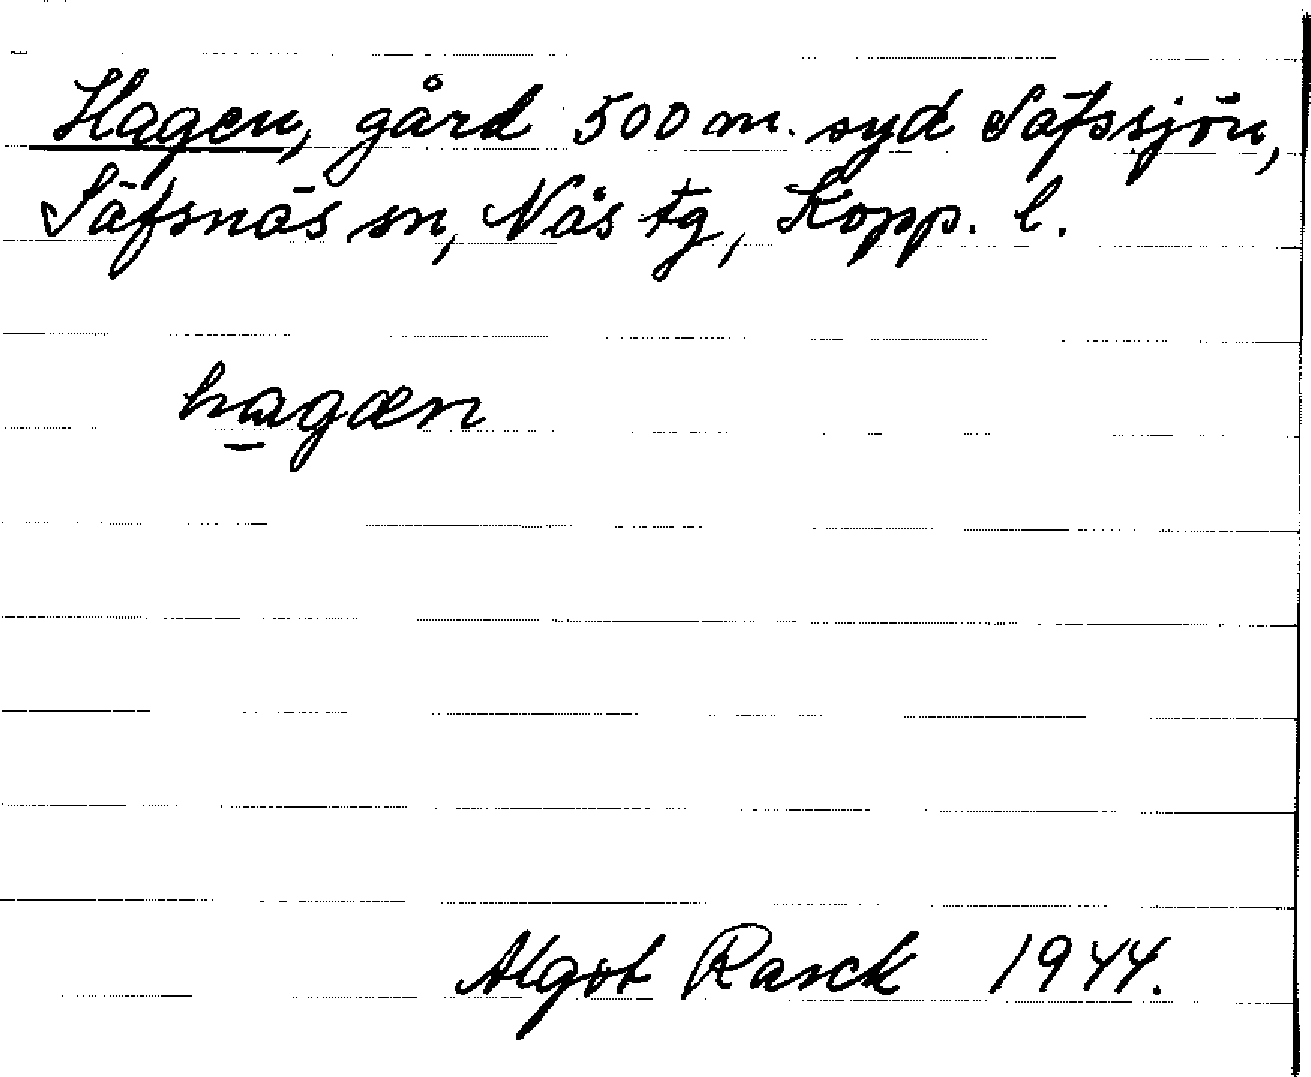 Hagen, gård 500 m. syd Säfssjön,
Säfsnäs sn, Nås tg, Kopp. l.
hagæn
Algot Rasck 1944.